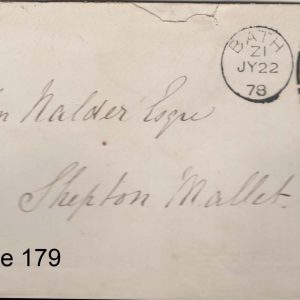 BATH
Z1
JY22
78
n Nalder Esqre
Shepton Mallet.
e 179